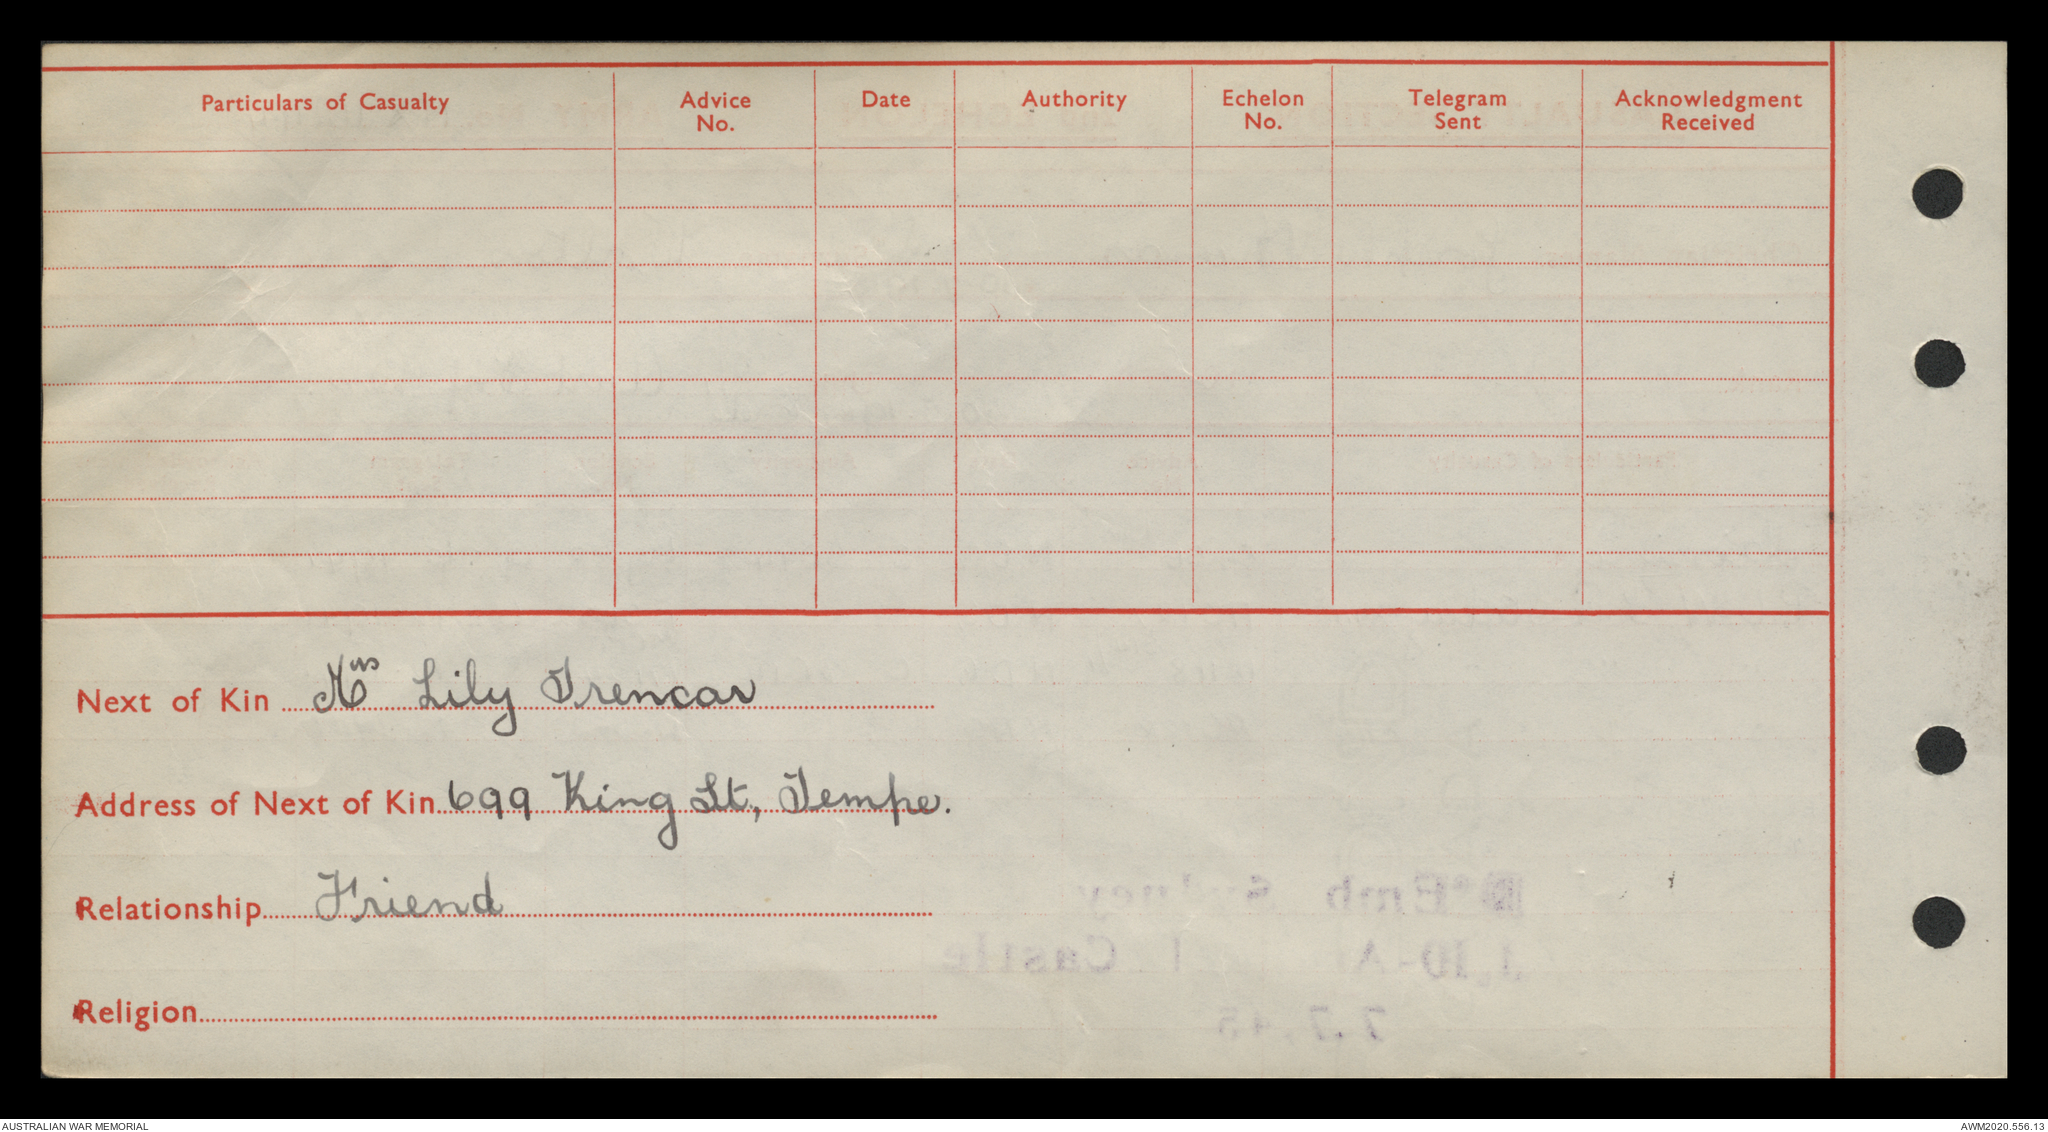 Particulars of Casualty Advice No. Date Authority Echelon No. Telegram Sent Acknowledgment Received
Next of Kin Mrs Lily Trencar
Address of Next of Kin 699 King St, Tempe.
Relationship Friend
Religion
AUSTRALIAN WAR MEMORIAL AWM2020.556.13